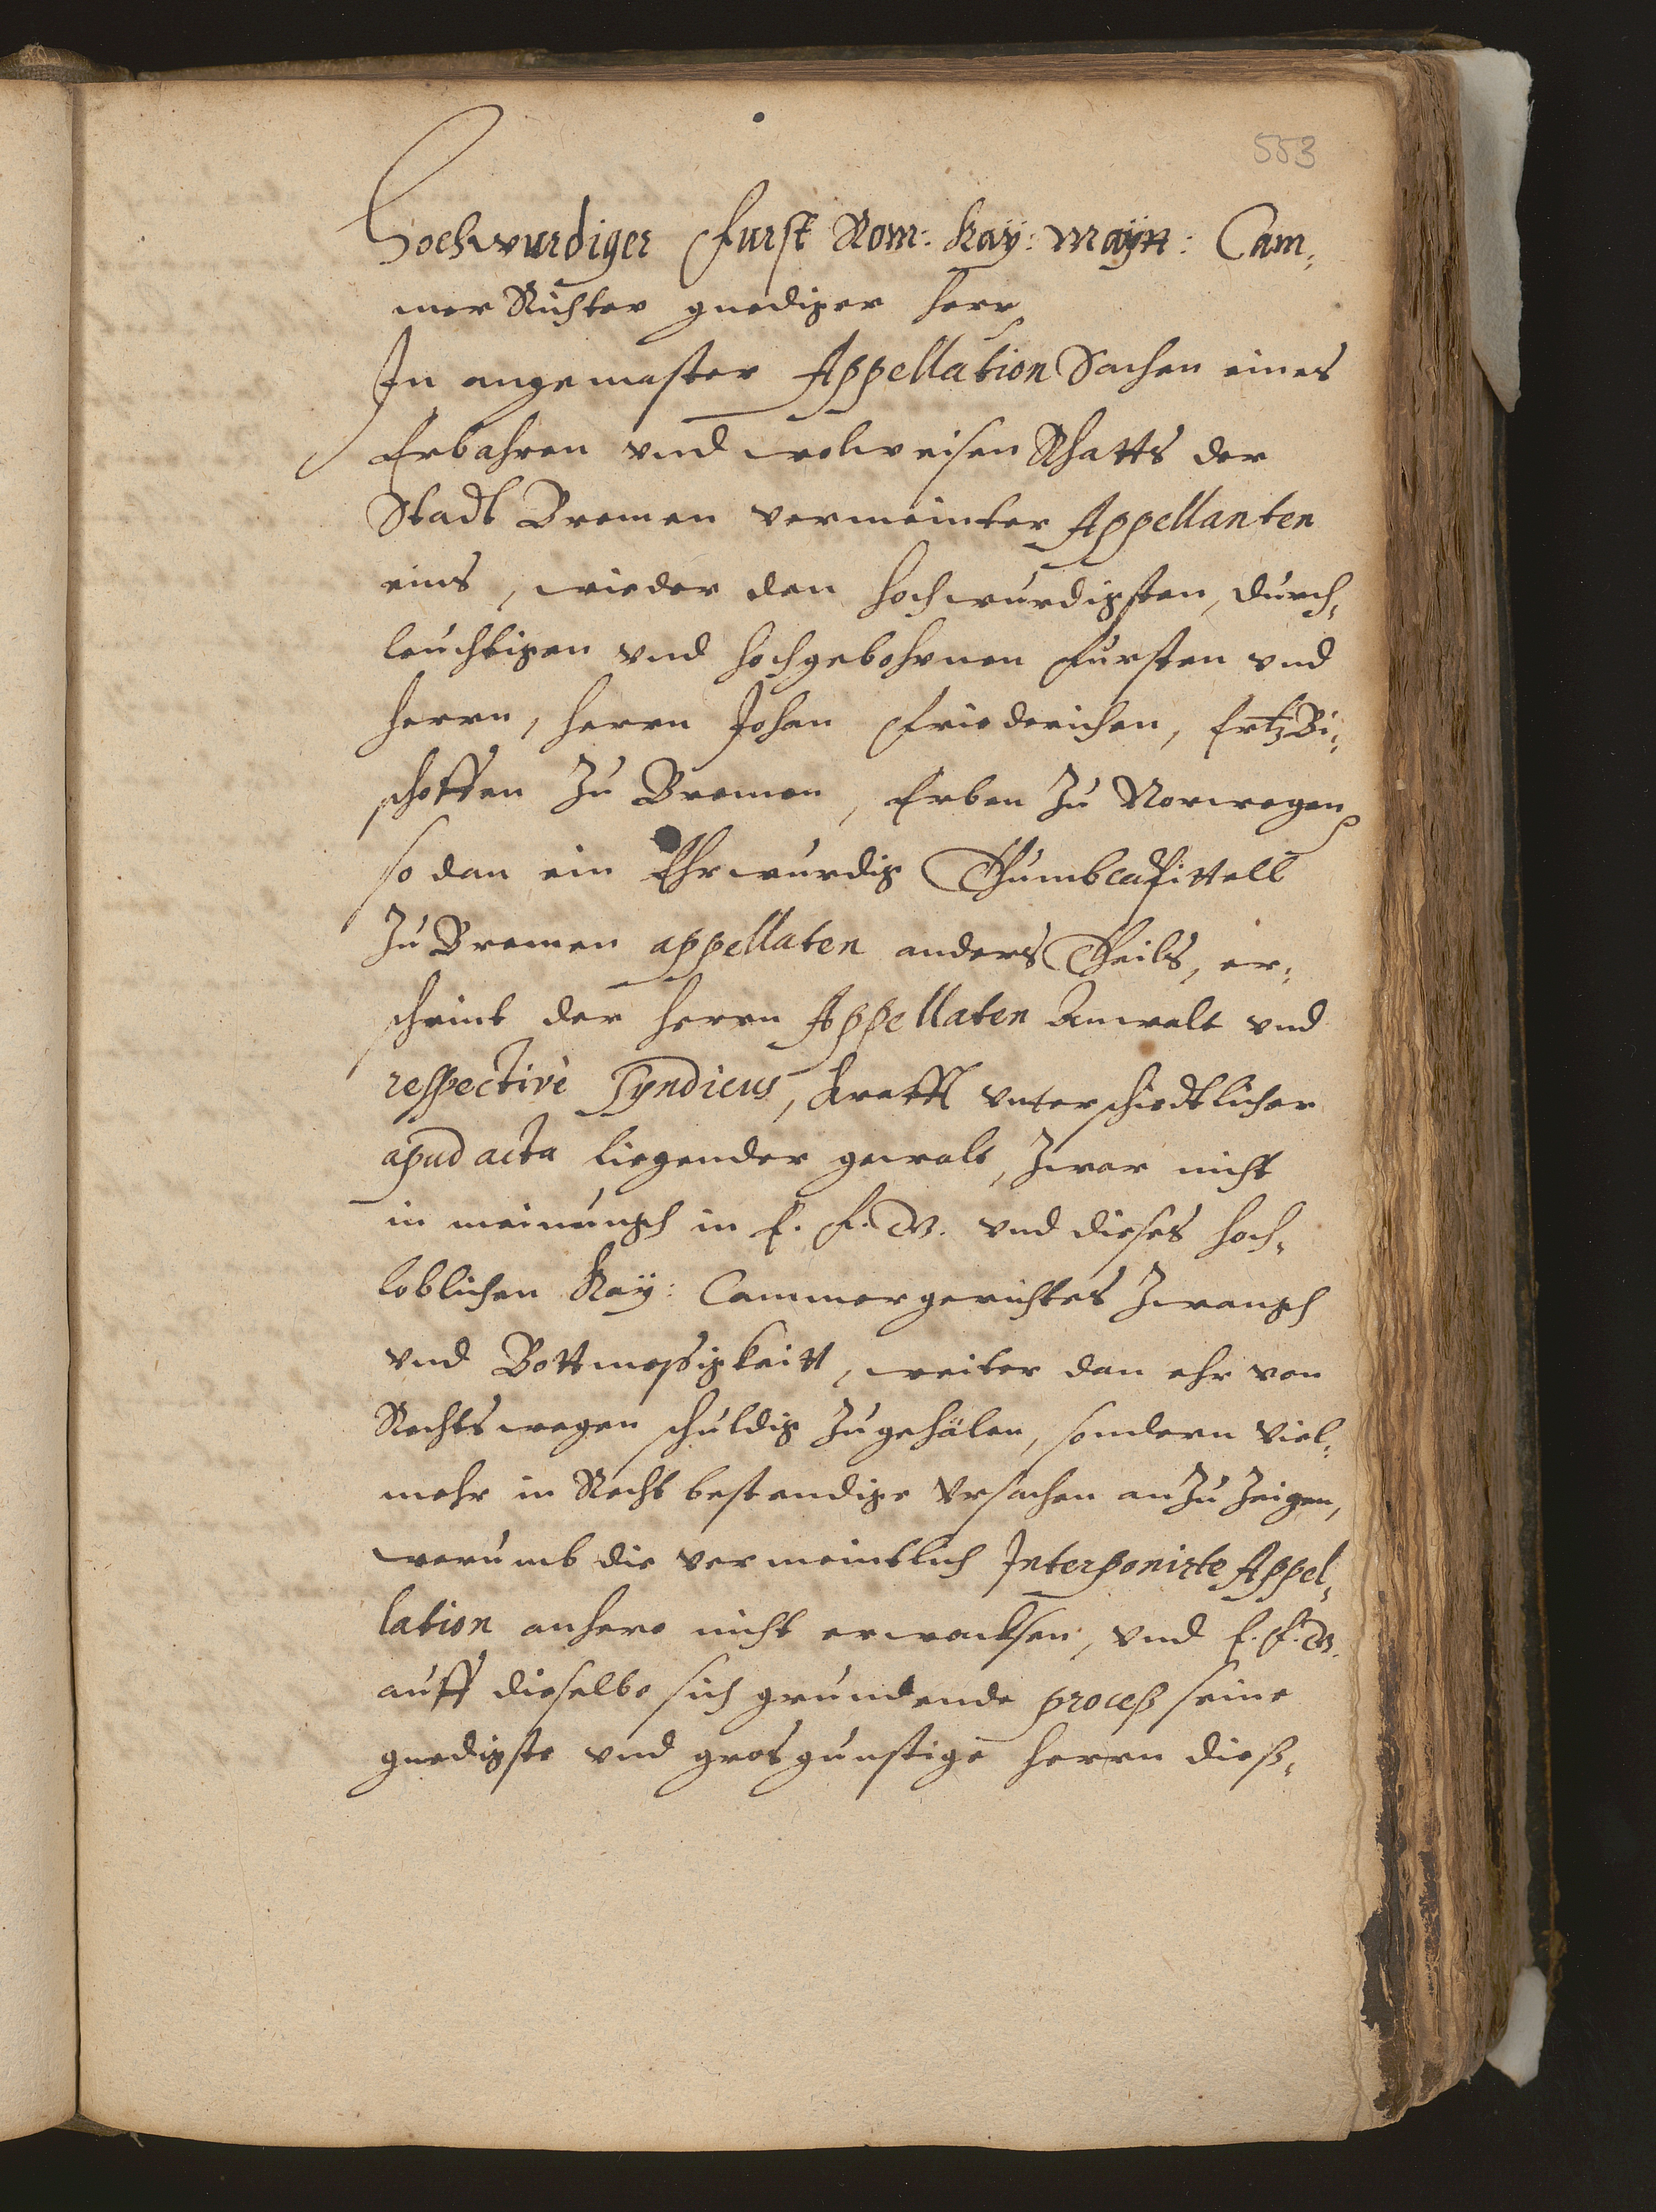 553
Hochwurdiger Furst Rom: Kay: Mayn: Cam¬
mer Richter gnediger Herr
In angemaster Appellation Sachen eines
Erbahren vnd wolweisen Rhatts der
Stadt Bremen vermeinter Appellanten
eins, wieder den Hochwurdigsten, Durch¬
leuchtigen vnd Hochgebohrnen Fursten vnd
Herrn, Herrn Johan Friederichen, ErtzBi¬
schoffen Zu Bremen, Erben Zu Norwegen
so dan ein Ehrwurdig Thumbcapittell
Zu Bremen appellaten anders Theils, er¬
scheint der Herrn Appellaten Anwalt vnd
respectivè Syndicus, krafft vnterschiedtlicher
apud acta liegender gewalt, Zwar nicht
in meinungh in E. F. G. vnd dieses Hoch¬
loblichen Kay: Cammergerichtes Zwangh
vnd Bottmessigkeitt, weiter dan ehr von
Rechts wegen schuldig Zugehälen, sondern viel¬
mehr in Recht bestendige Vrsachen anzu Zeigen,
warumb die vermeintlich Interponirte Appel¬
lation anhero nicht erwachsen, vnd E. F. G.
auff dieselbe sich grundende proceß seine
gnedigste vnd grosgunstige Herrn dieß¬